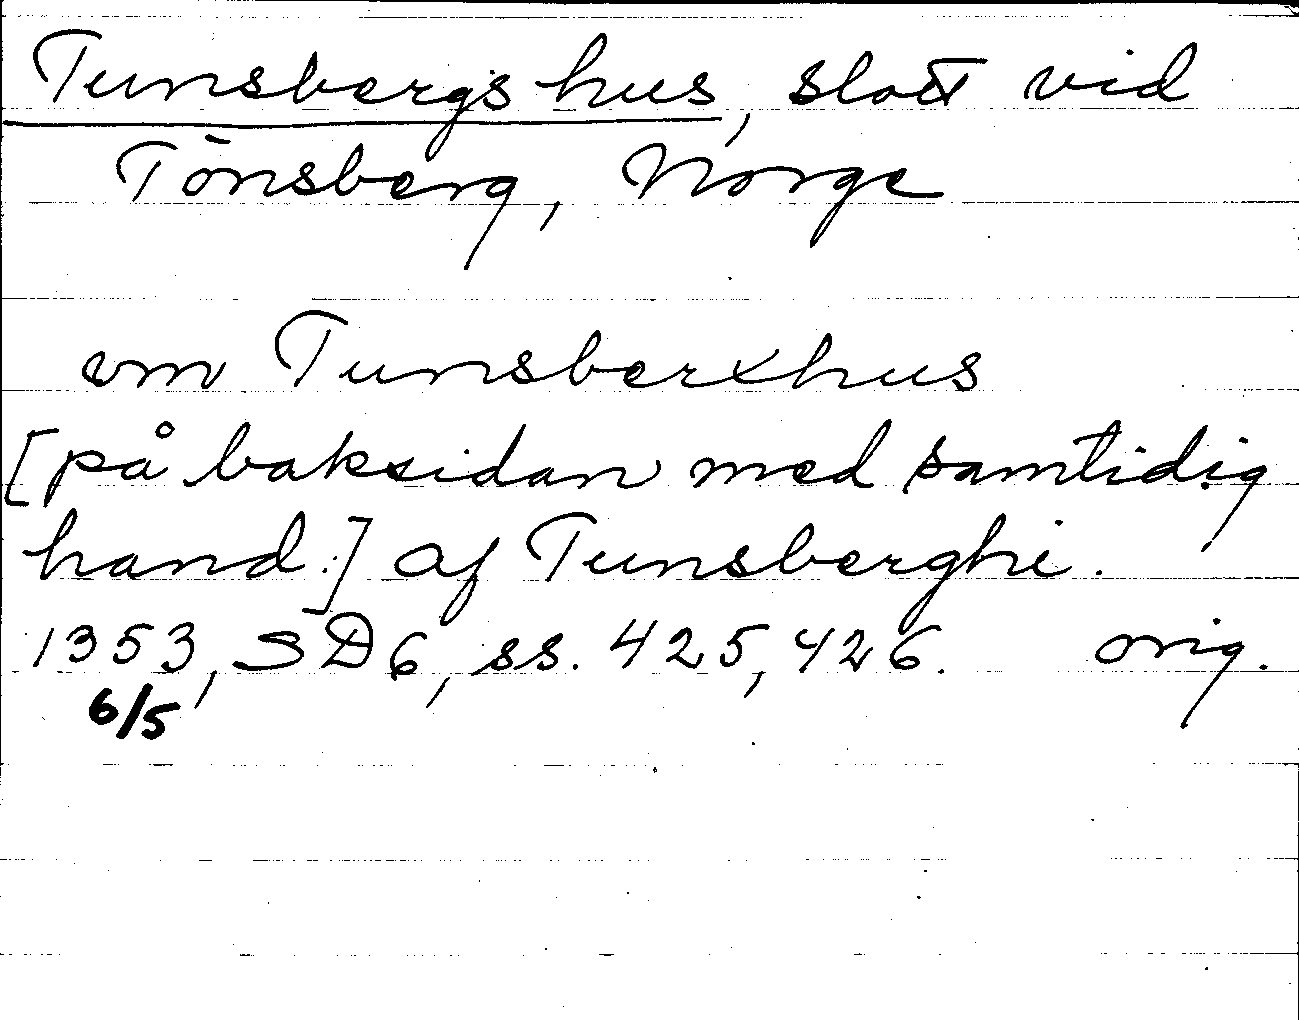 Tunsbergs hus, slott vid
Tönsberg, Norge
om Tunsberxhus
[på baksidan med samtidig
hand:] af Tunsberghi.
1353, SD 6, ss. 425, 426. orig.
6/5